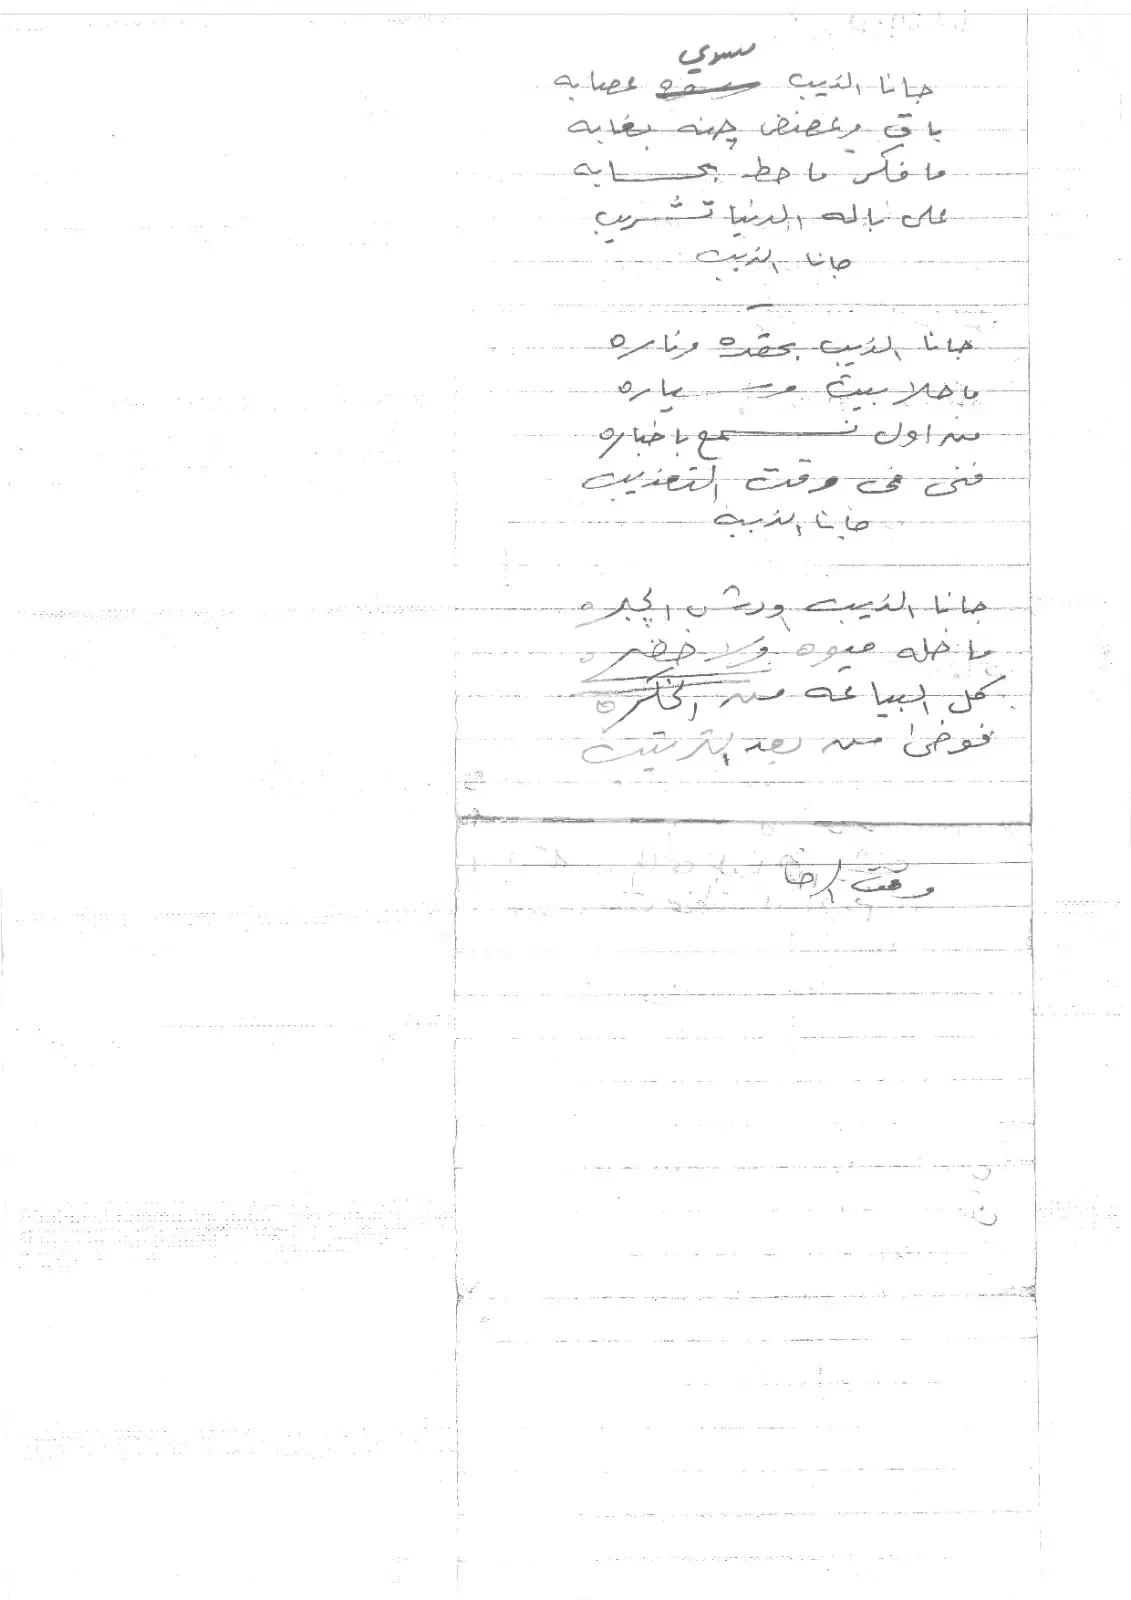 مسوي
جانا الذيب عصابه
باق وغصنض چنه بغابه
ما فكر ما حط بحسابه
على باله الدنيا تشريب
جانا الذيب
جانا الذيب بحقده وناره
ما خلا بيت وسياره
من اول نسمع باخباره
فنى في وقت التعذيب
جانا الذيب
جانا الذيب ودش الچبره
ما خله ميوه ولا خضره
كل البياعه من الخكره
فوضى من بعد الترتيب
وقت الرخا